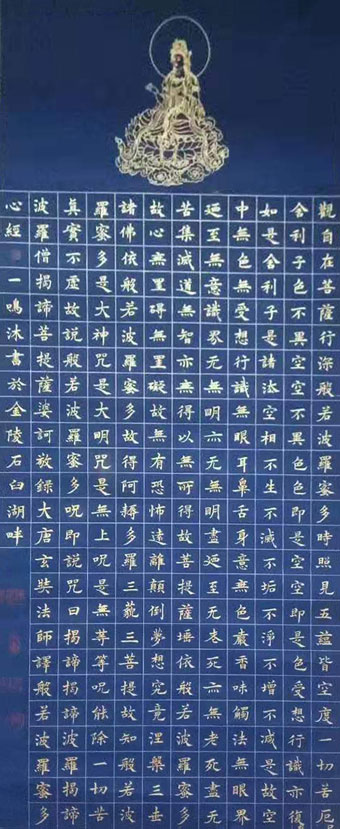 觀自在菩薩行深般若波羅蜜多時照見五蘊皆空度一切苦厄
舍利子色不異空空不異色色即是空空即是色受想行識亦復
如是舍利子是諸法空相不生不滅不垢不淨不增不減是故空
中無色無受想行識無眼耳鼻舌身意無色聲香味觸法無眼界
廼至無意識界无無明亦无無明盡廼至无老死亦無老死盡无
苦集滅道無智亦無得以無所得故菩提薩埵依般若波羅蜜多
故心無罣礙無罣礙故無有恐怖遠離顛倒夢想究竟涅槃三世
諸佛依般若波羅蜜多故得阿耨多羅三藐三菩提故知般若波
羅蜜多是大神咒是大明咒是無上呪是無等等呪能除一切苦
真實不虛故說般若波羅蜜多呪即說咒曰揭諦揭諦波羅揭諦
波羅僧揭諦菩提薩婆訶敬錄大唐玄奘法師譯般若波羅蜜多
心經一鳴沐書於金陵石臼湖畔